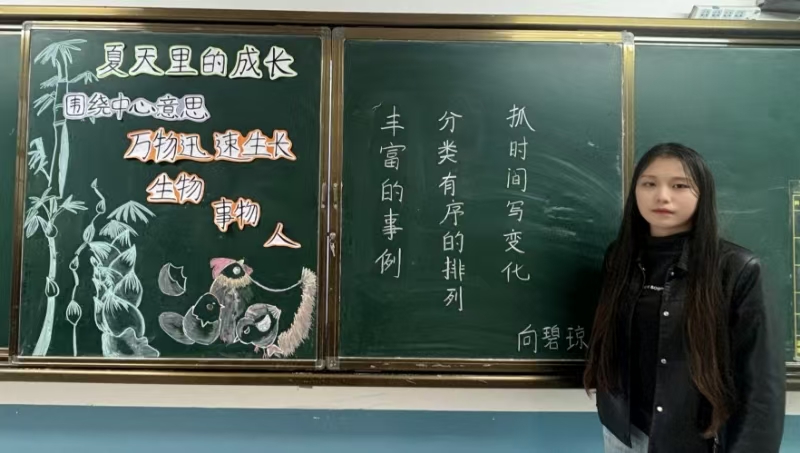 夏天里的成长
围绕中心意思
万物迅速生长
生物
事物
人
抓时间写变化
分类有序的排列
丰富的事例
向碧琼